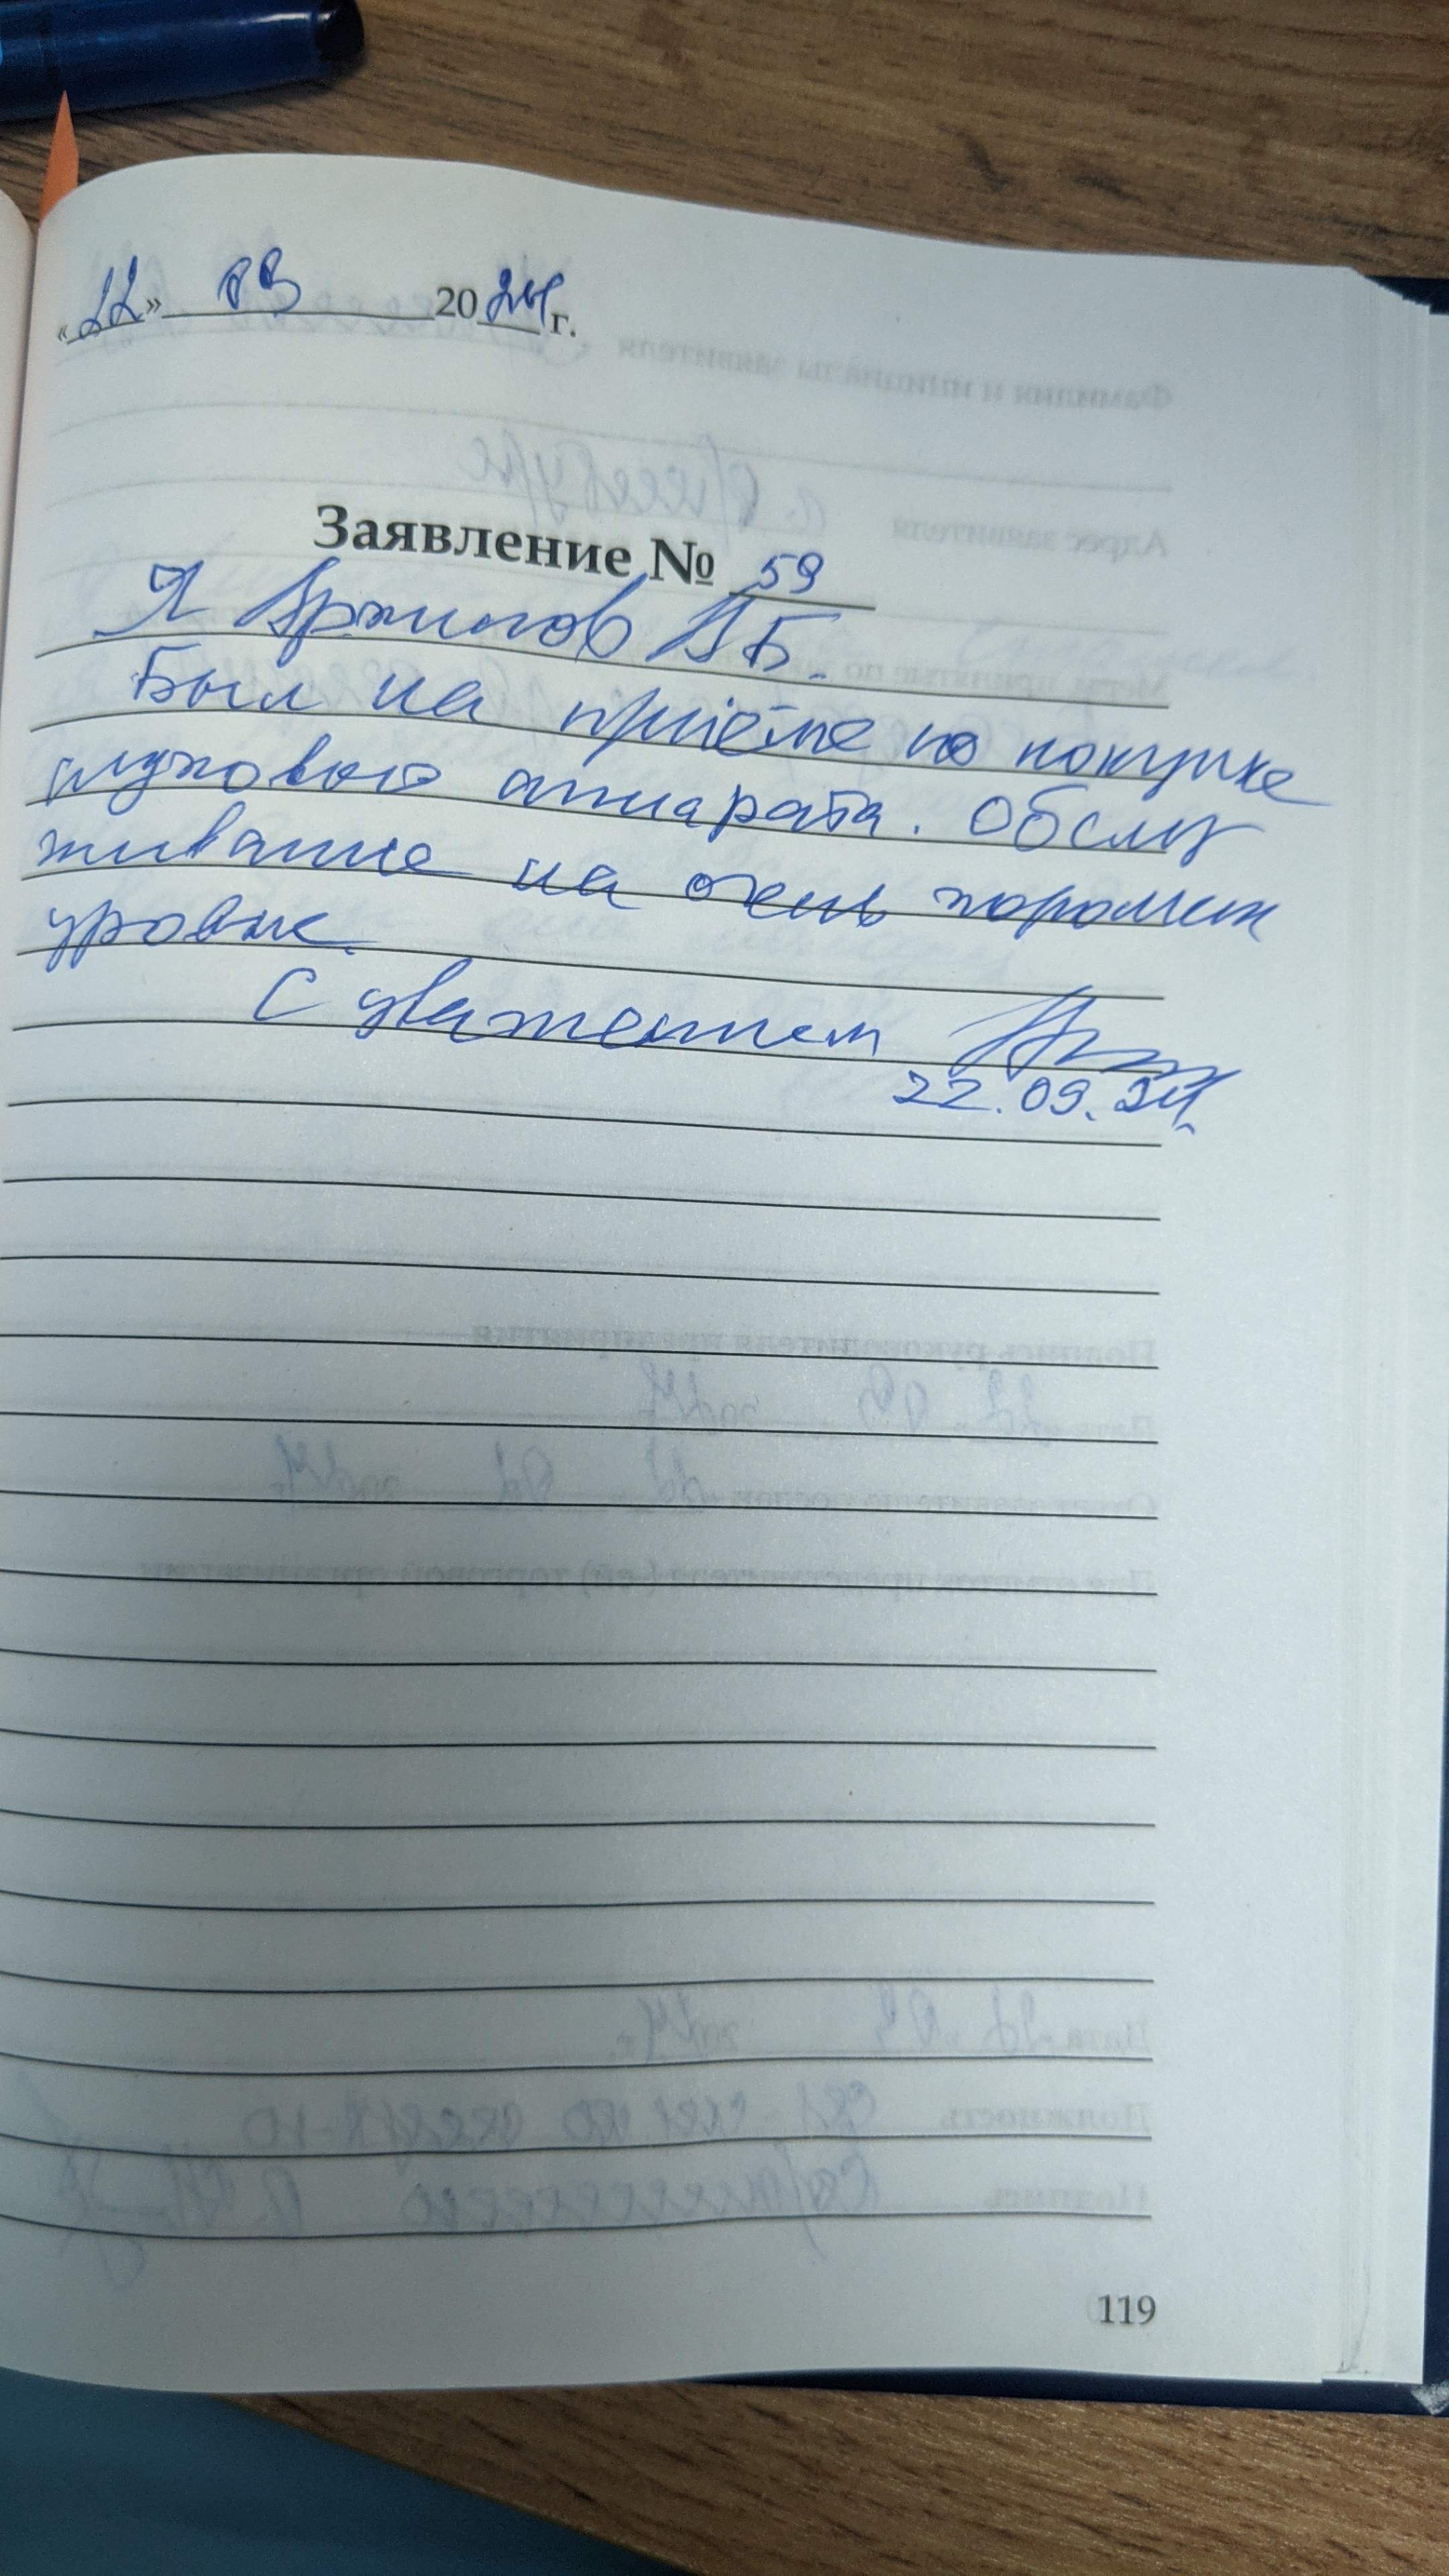 «22» 09 2024 г.
Заявление № 59
Я Архипов А Б.
Был на приёме по покупке
слухового аппарата. Обслу
живание на очень хорошем
уровне.
С уважением
22.09.24.
119